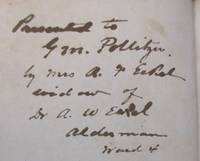 Presented to
G M. Pollitzer.
by Mrs A. W Eckel
widow of
Dr A. W Eckel
Alderman
Ward 4